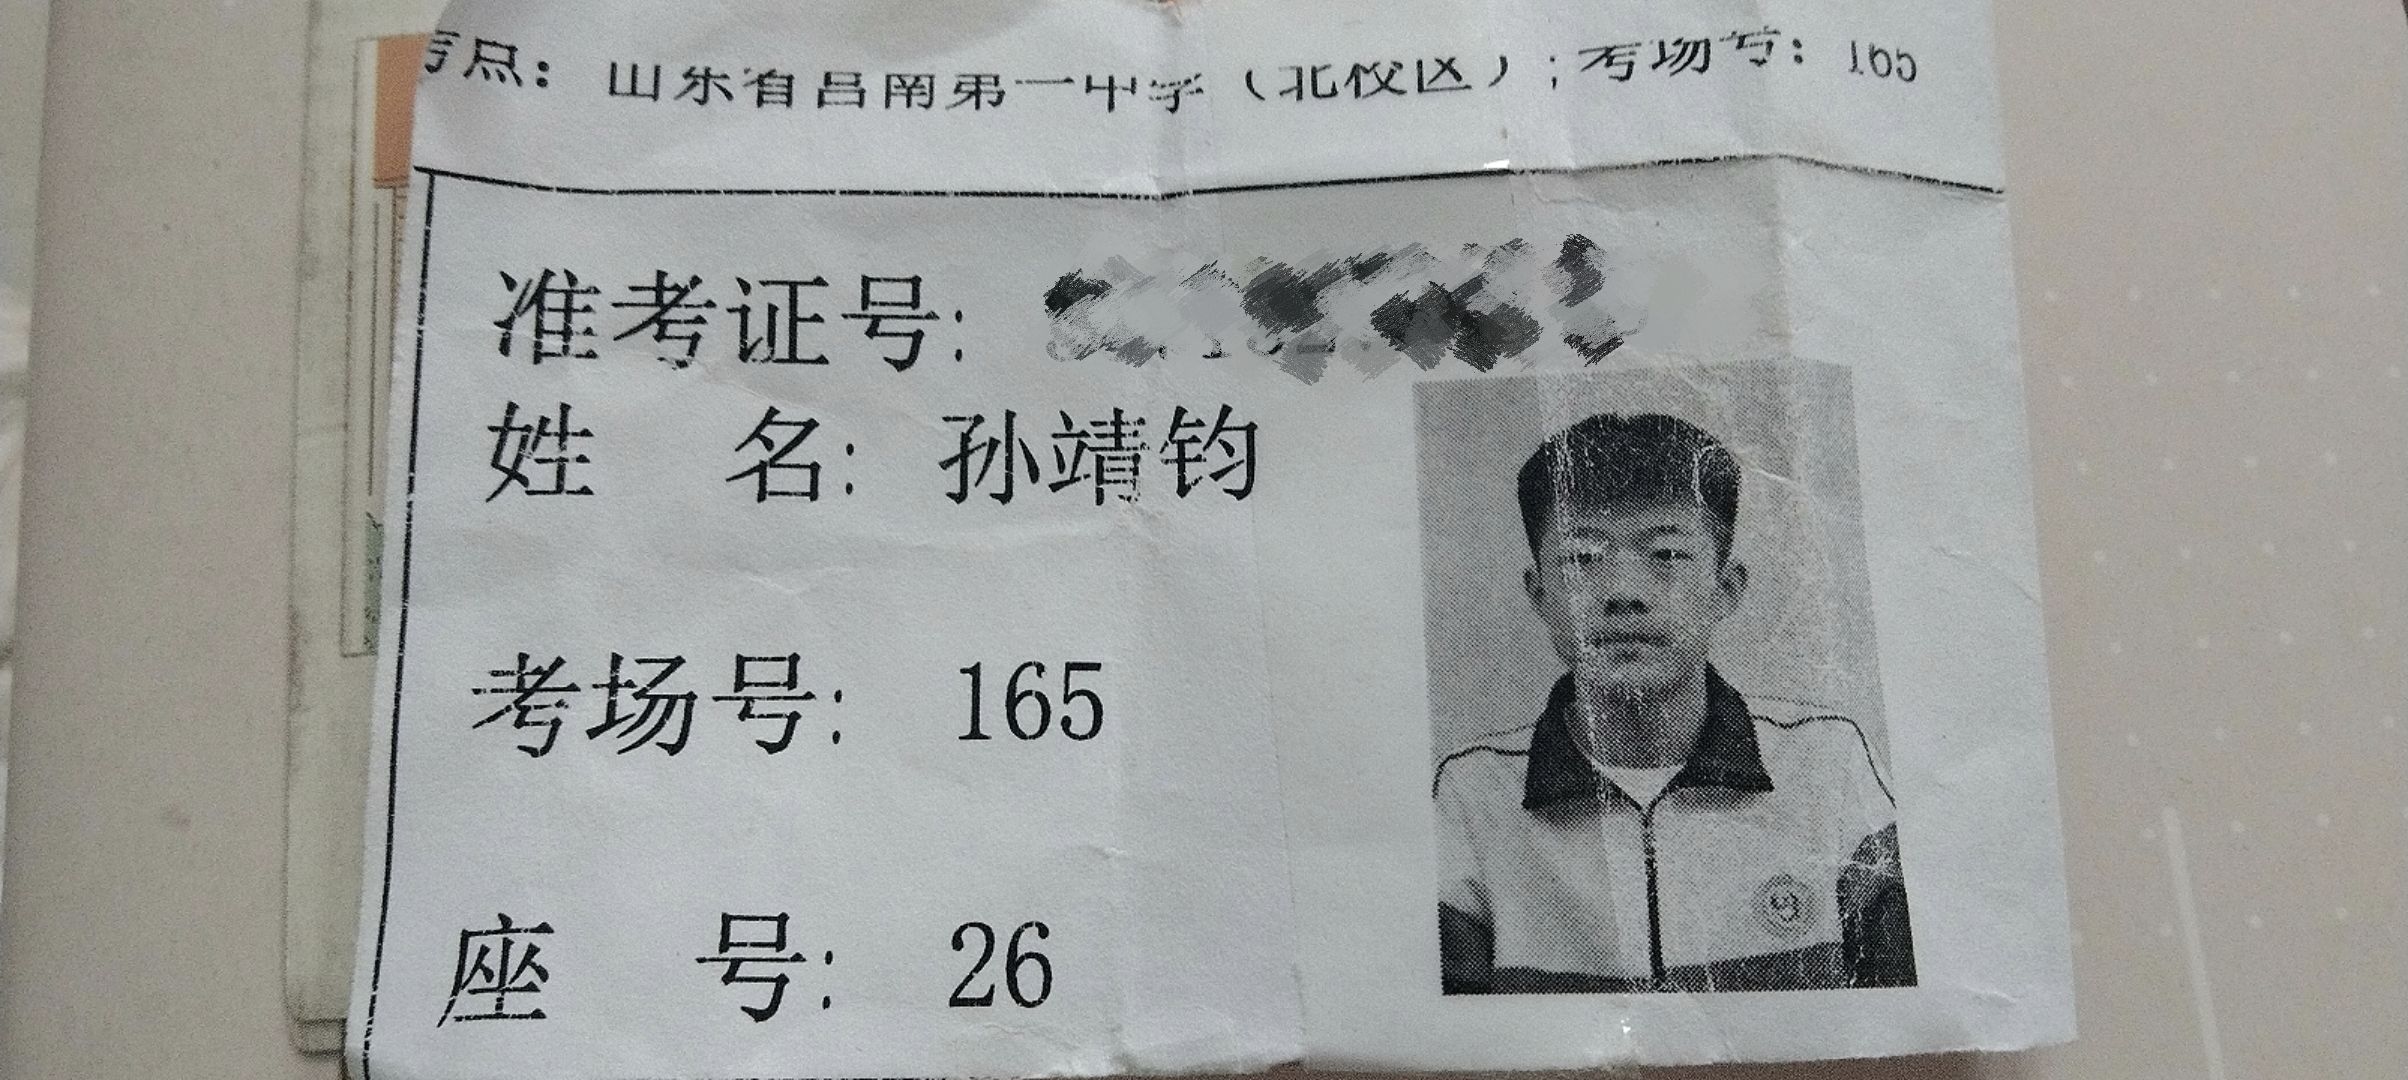 考点：山东省莒南第一中学（北校区）；考场号：165
准考证号：
姓 名：孙靖钧
考场号：165
座 号：26